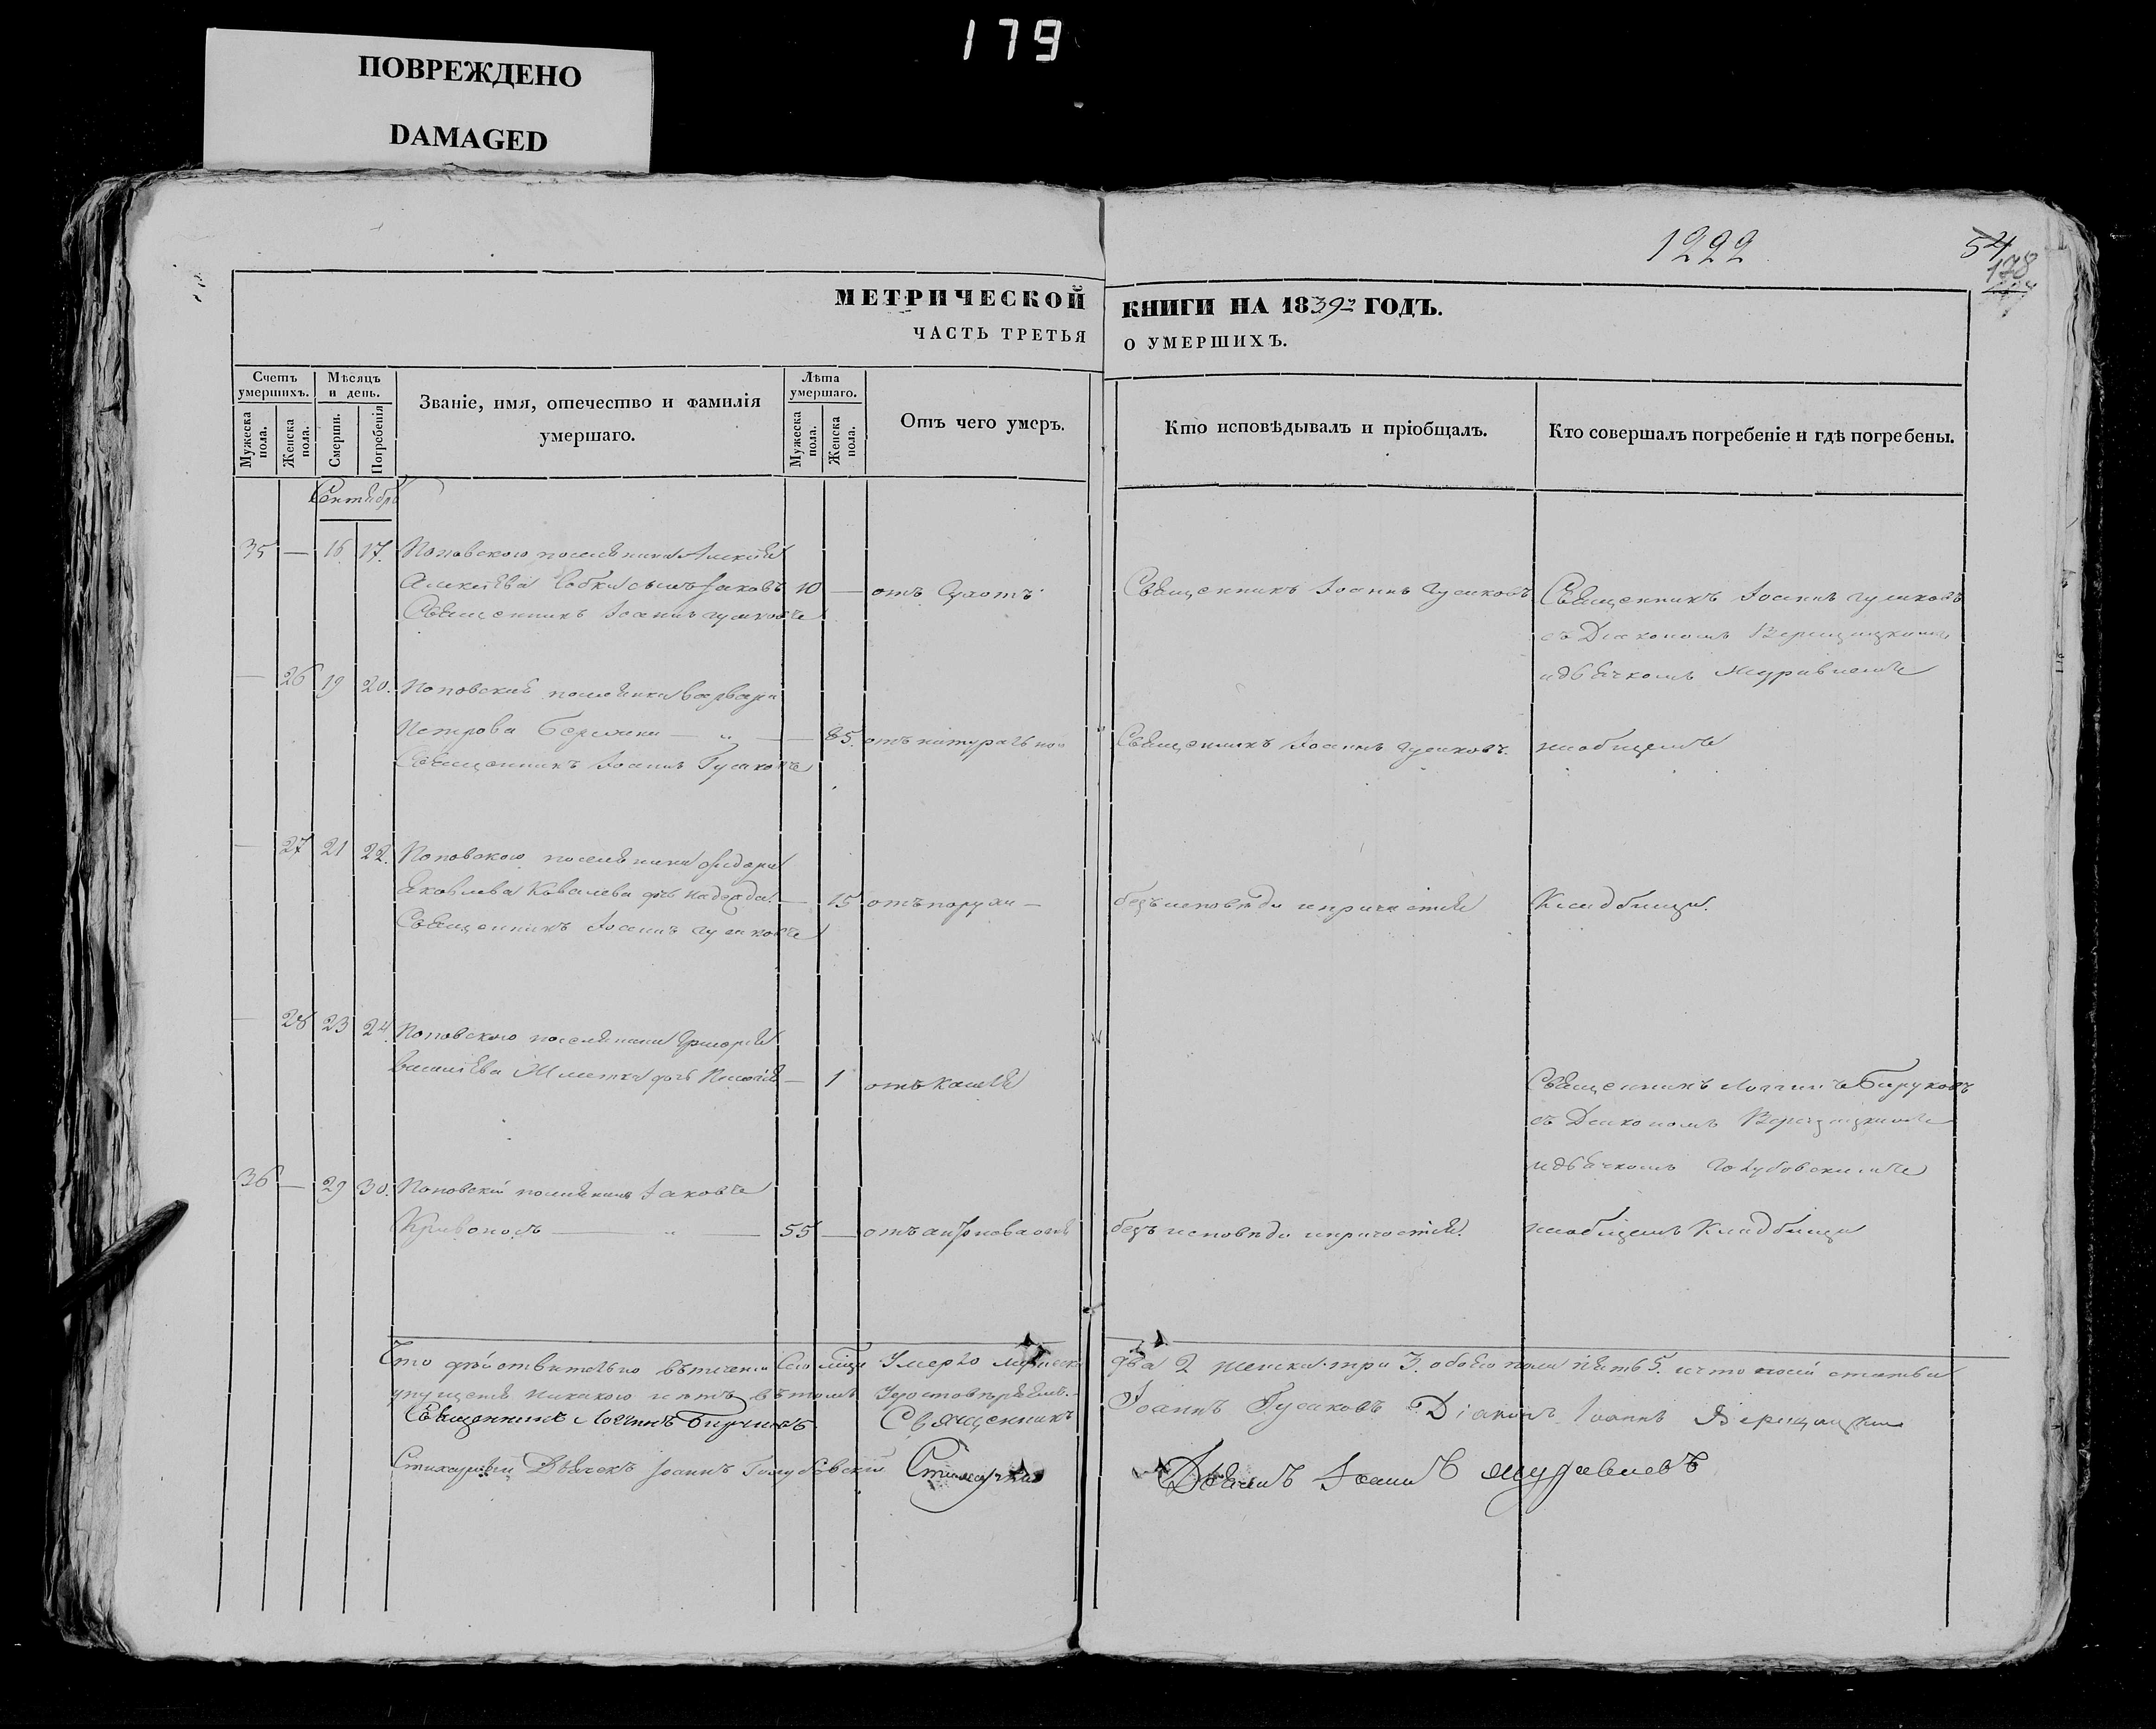 179
ПОВРЕЖДЕНО
DAMAGED
1222
54
178
МЕТРИЧЕСКОЙ КНИГИ НА 1839 ГОДЪ.
ЧАСТЬ ТРЕТЬЯ О УМЕРШИХЪ.
Счетъ умершихъ.
Мужеска пола.
Женска пола.
Мѣсяцъ и день.
Смерти.
Погребенія
Званіе, имя, отечество и фамилія умершаго.
Лѣта умершаго.
Мужеска пола.
Женска пола.
Отъ чего умеръ.
Кто исповѣдывалъ и пріобщалъ.
Кто совершалъ погребеніе и гдѣ погребены.
Сентябрь
35 — 16 17. Поповскаго поселянина Алексѣя
Алексѣева сынъ Іаковъ 10 — отъ Священникъ Іоаннъ Гусаковъ Священникъ Іоаннъ Гусаковъ
Священникъ Іоаннъ Гусаковъ
съ Діакономъ Верещацкимъ
и дьячкомъ Журавлемъ
— 26 19 20. Поповская поселянка Варвара
Петрова — 85. отъ натуральной Священникъ Іоаннъ Гусаковъ. на общемъ
Священникъ Іоаннъ Гусаковъ
— 27 21 22. Поповскаго поселянина
Яковлева Ковалева дочь Надежда. — 15 отъ — безъ исповѣди и причастія Кладбищѣ.
Священникъ Іоаннъ Гусаковъ
— 28 23 24. Поповскаго поселянина Григорія
Василіева дочь — 1 отъ кашля
Священникъ Логгинъ
съ Діакономъ Верещацкимъ
и дьячкомъ Голубовскимъ
36 — 29 30. Поповскій поселянинъ Іаковъ
Кривоносъ — 55 — отъ безъ исповѣди и причастія. на общемъ Кладбищѣ
Что дѣйствительно въ теченіи сего мѣсяца умерло мужеска два 2 женска три 3. обоего пола пять 5. и что въ сей статьи
упущенія никакого нѣтъ въ томъ удостовѣряемъ.
Священникъ Логгинъ Священникъ Іоаннъ Гусаковъ Діаконъ Іоаннъ Верещацкій
Стихарный Дьячекъ Іоаннъ Голубовскій Стихарный Дьячекъ Іоаннъ